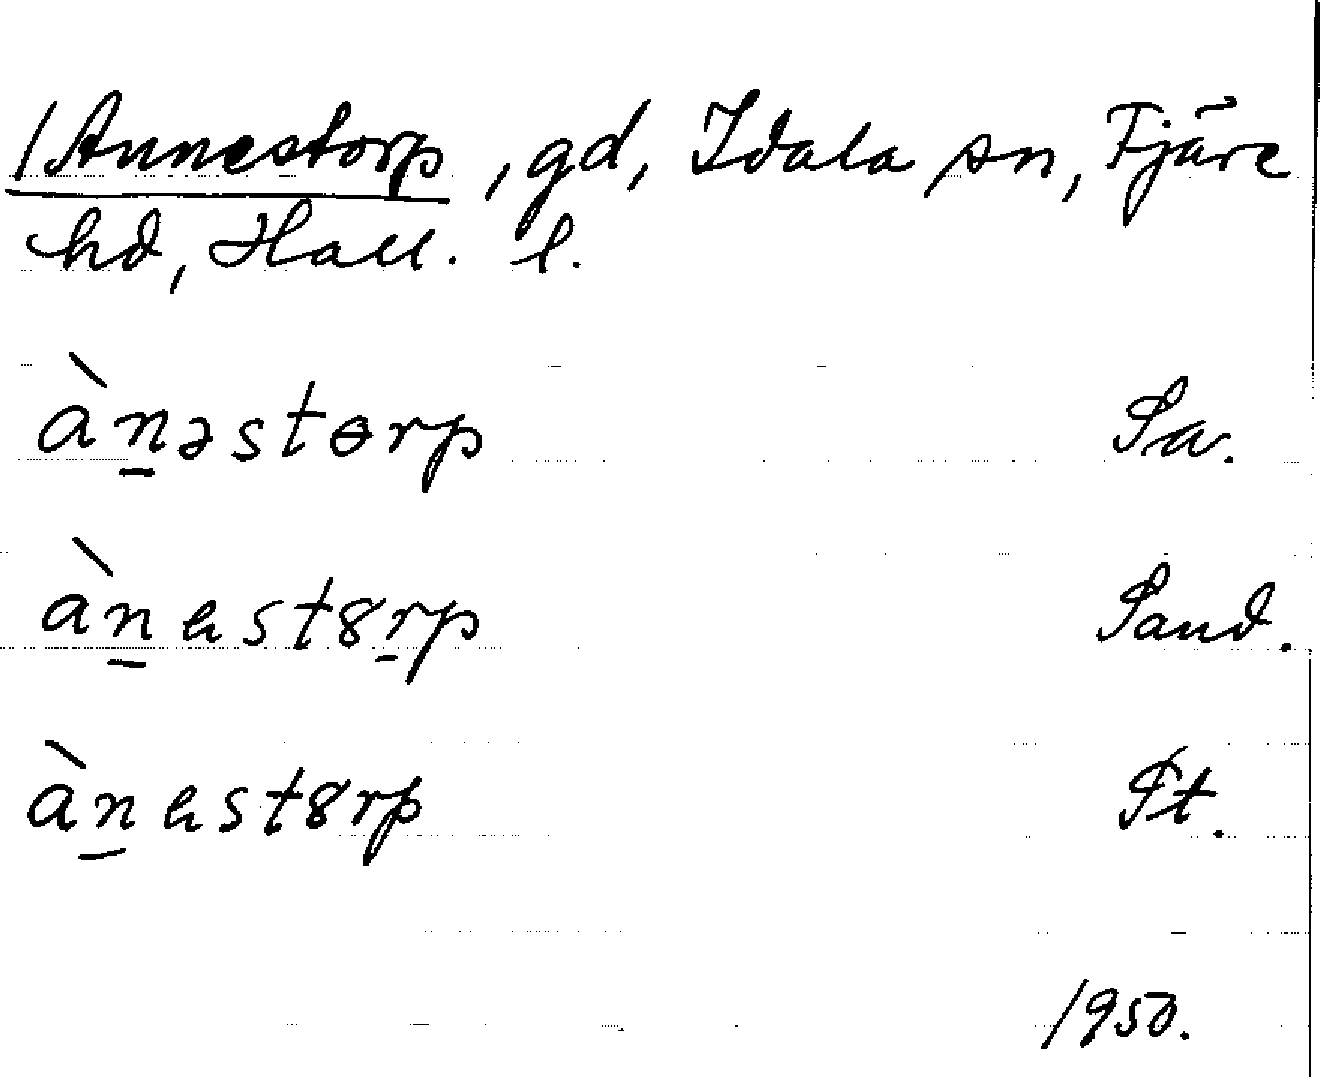 /Annestorp, gd, Idala sn, Fjäre
hd, Hall. l.
ànəstɵrp Sa.
ànestȣrp Sand.
ànestȣrp St.
1950.